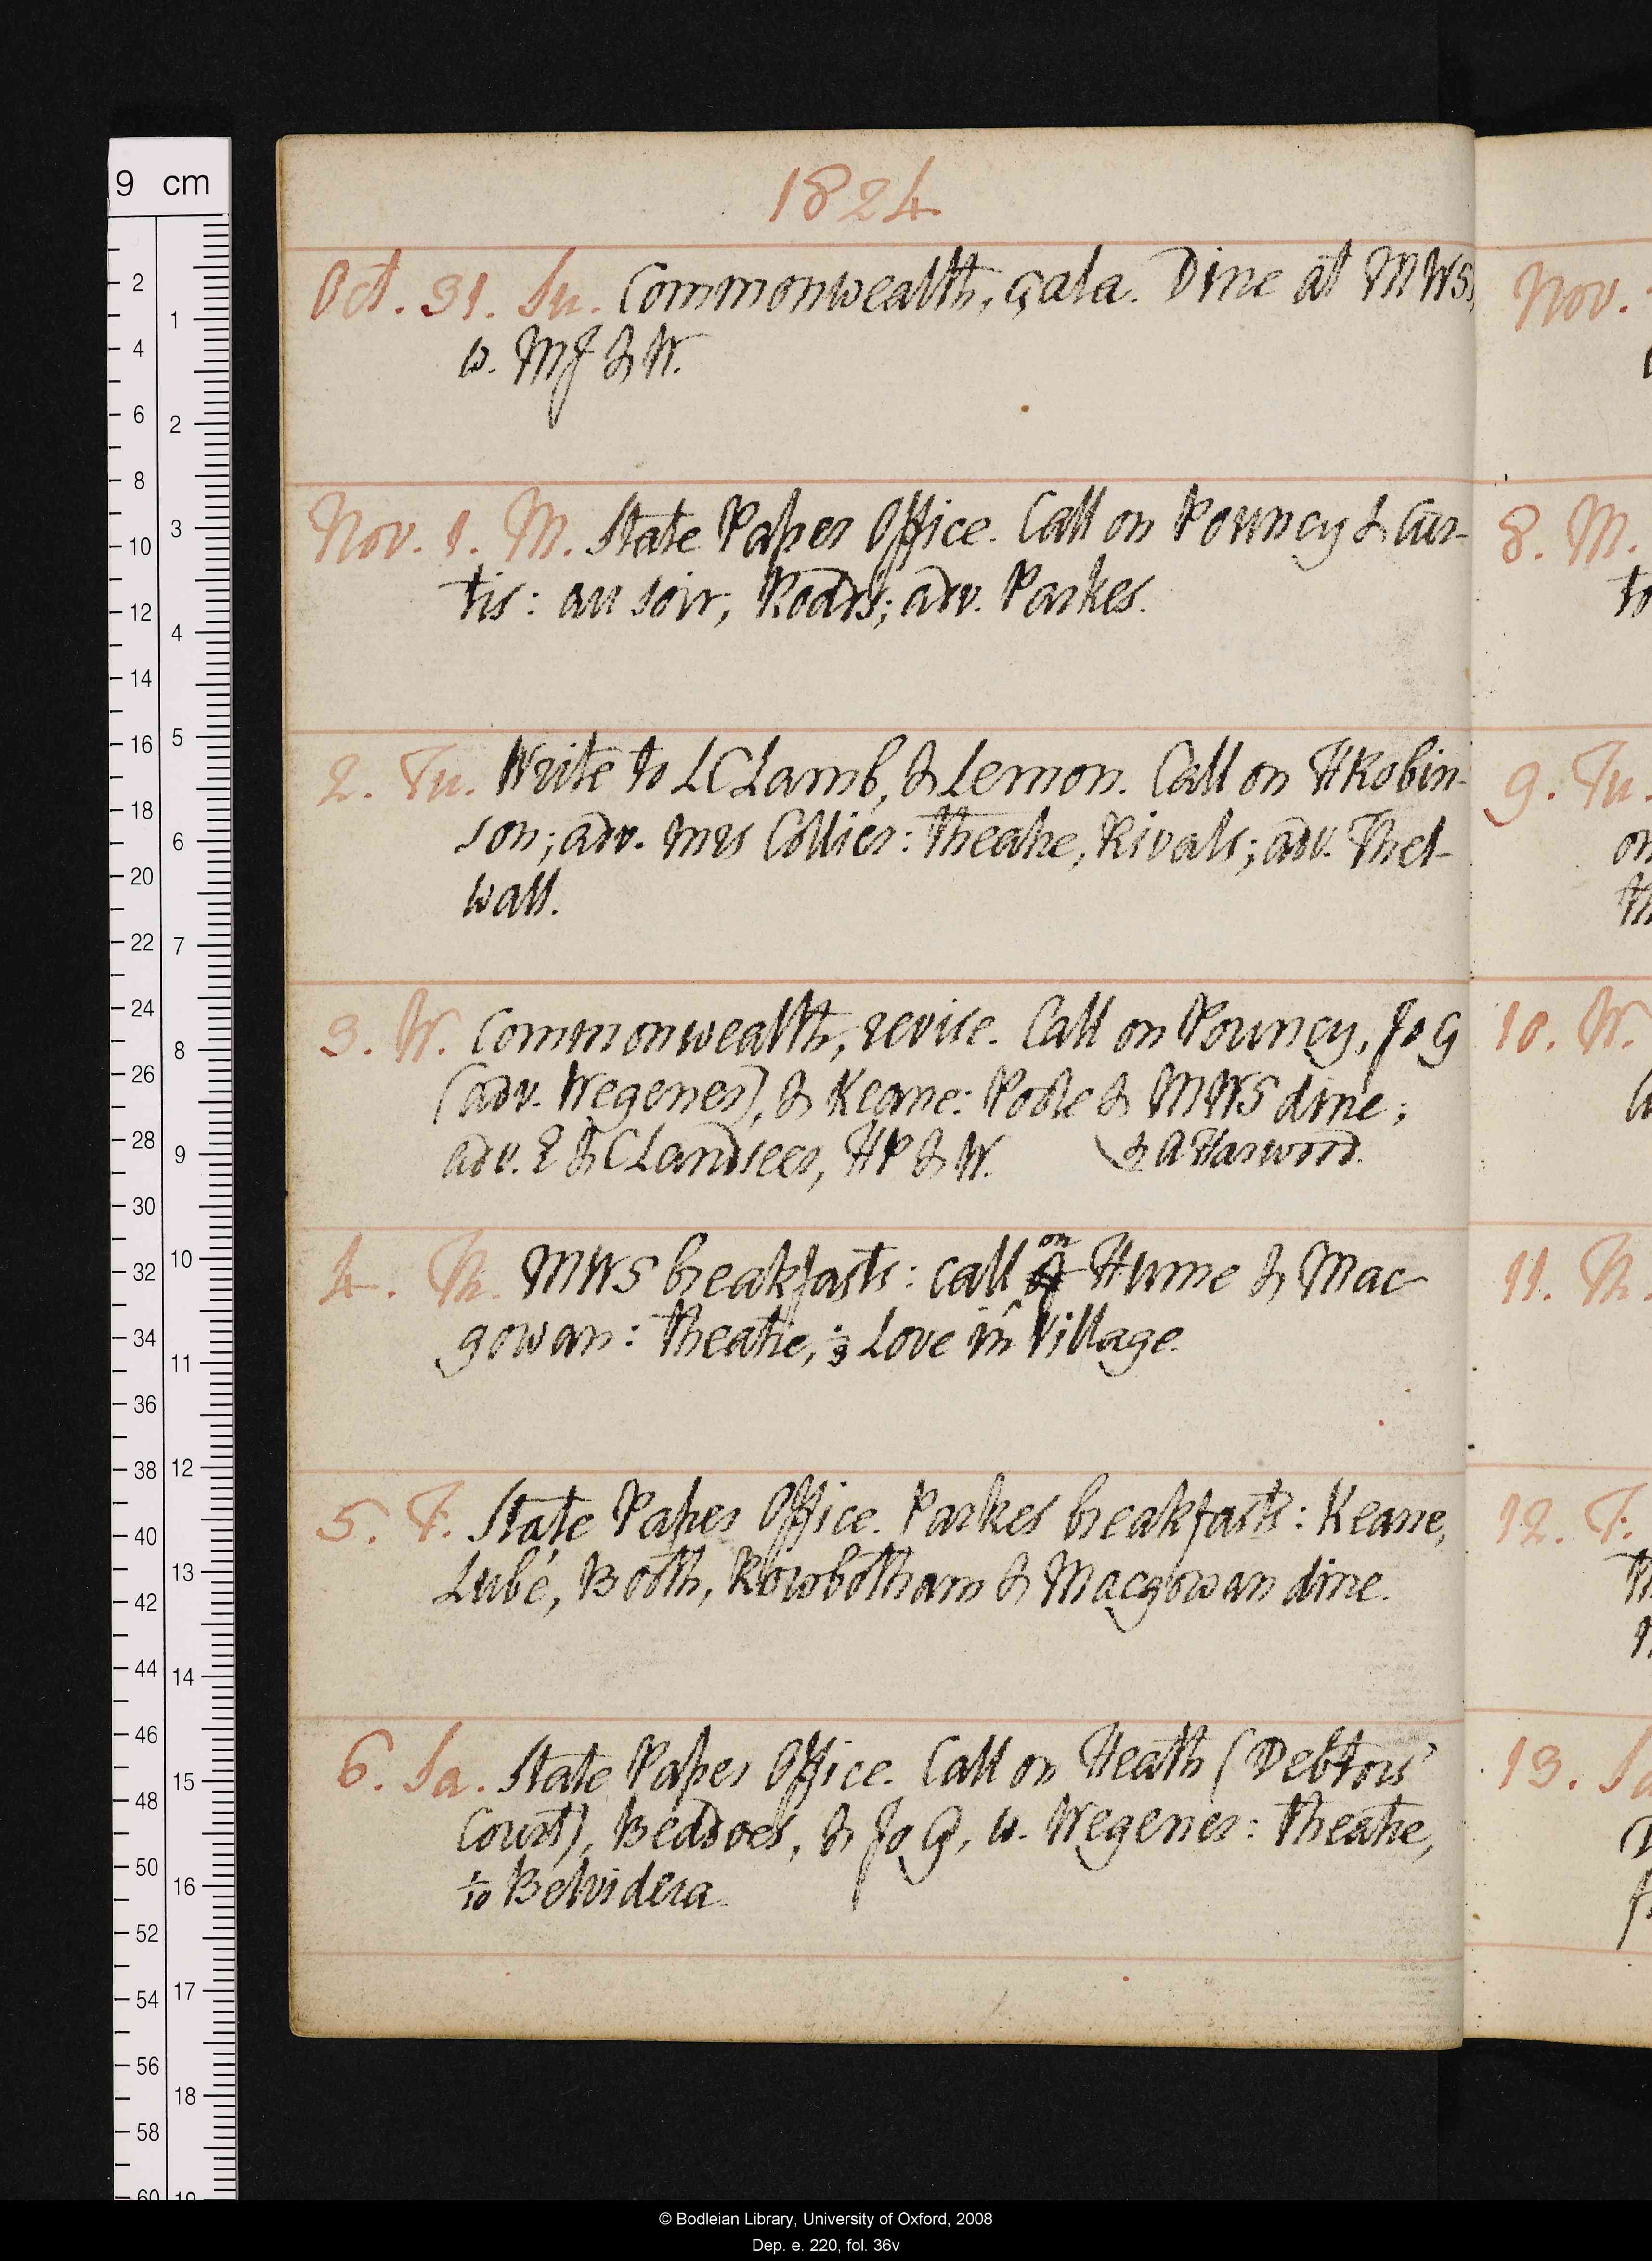 1824
Oct. 31. Su. Commonwealth, çala. Dine at MWS,
w. MJ & W.
Nov. 1. M. State Paper Office. Call on Pouncy & Cur-
tis: au soir, Roads; adv. Parkes.
2. Tu. Write to LCLamb, & Lemon. Call on HRobin-
son; adv. Mrs Collier: theatre, Rivals; adv. Thel-
wall.
3. W. Commonwealth, revise. Call on Pouncy, Jo G
(adv. Wegener), & Keane: Poole & MWS dine;
adv. E & C Landseer, HP & W. & A Harwood.
4. Th. MWS breakfasts: call on Hume & Mac-
gowan: theatre, Love in Village.
5. F. State Paper Office. Parkes breakfasts: Keane,
Lubé, Booth, Rowbotham & Macgowan dine.
6. Sa. State Paper Office. Call on Heath (Debtors'
Court), Beddoes, & Jo G, w. Wegener: theatre,
1/10 Belvidera.
Nov.
8. M.
to
9. Tu.
on
10. W.
11. Th.
12. F.
13. Sa
9 cm
2 4 6 8 10 12 14 16 18 20 22 24 26 28 30 32 34 36 38 40 42 44 46 48 50 52 54 56 58 60
1 2 3 4 5 6 7 8 9 10 11 12 13 14 15 16 17 18 19
© Bodleian Library, University of Oxford, 2008
Dep. e. 220, fol. 36v